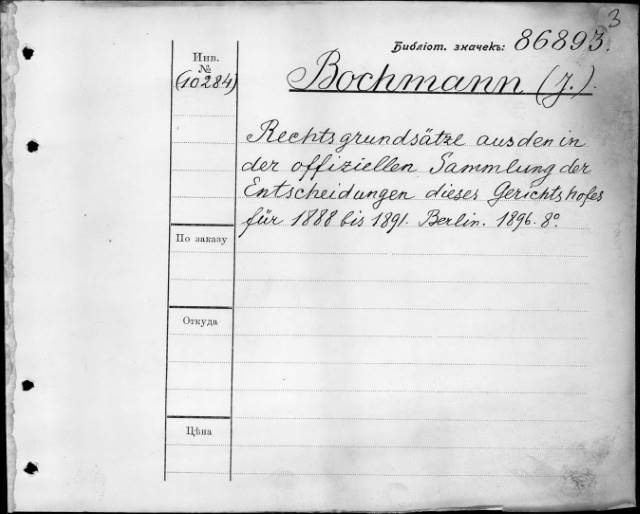 3
Библіот. значекъ: 86893.
Инв.
№
(10284)
Bochmann (J.).
Rechtsgrundsätze aus den in
der offiziellen Sammlung der
Entscheidungen dieses Gerichtshofes
für 1888 bis 1891. Berlin. 1896. 8º.
По заказу
Откуда
Цѣна